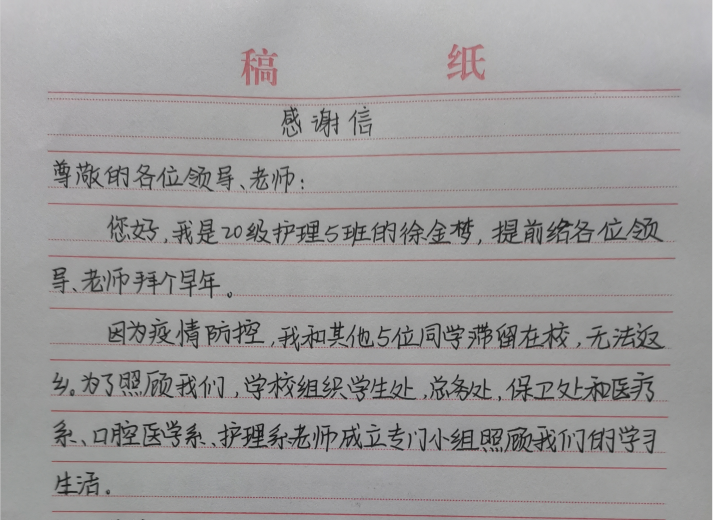 稿 纸
感谢信
尊敬的各位领导、老师:
您好,我是20级护理5班的徐金梦,提前给各位领
导、老师拜个早年。
因为疫情防控,我和其他5位同学滞留在校,无法返
乡。为了照顾我们,学校组织学生处、总务处、保卫处和医疗
系、口腔医学系、护理系老师成立专门小组照顾我们的学习
生活。